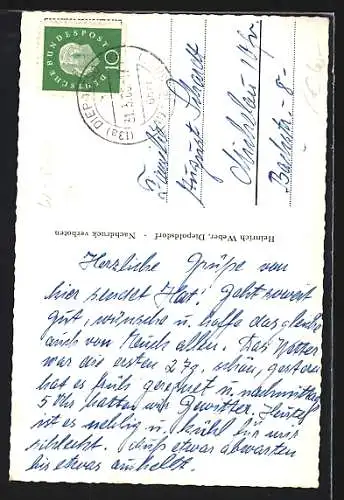 DEUTSCHE BUNDESPOST
10
(13a) DIEPO
Familie
August
Michelau Ofr.
8
Heinrich Weber, Diepoldsdorf - Nachdruck verboten
Herzliche Grüße von
hier sendet Geht soweit
gut, wünsche u. hoffe dasgleiche
auch von Euch allen. Das Wetter
war die ersten 2 Tg. schön, gestern
hat es früh geregnet u. nachmittag
5 Uhr hatten wir Gewitter. Heute
ist es neblig u. kühl für mich
schlecht. Muß etwas abwarten
bis etwas aufhellt.